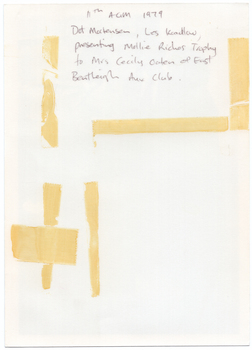 11th AGM 1979
Dot Mortensen, Les Kindlow,
presenting Mollie Riches Trophy
to Mrs Cecily Oaten of East
Av Club.